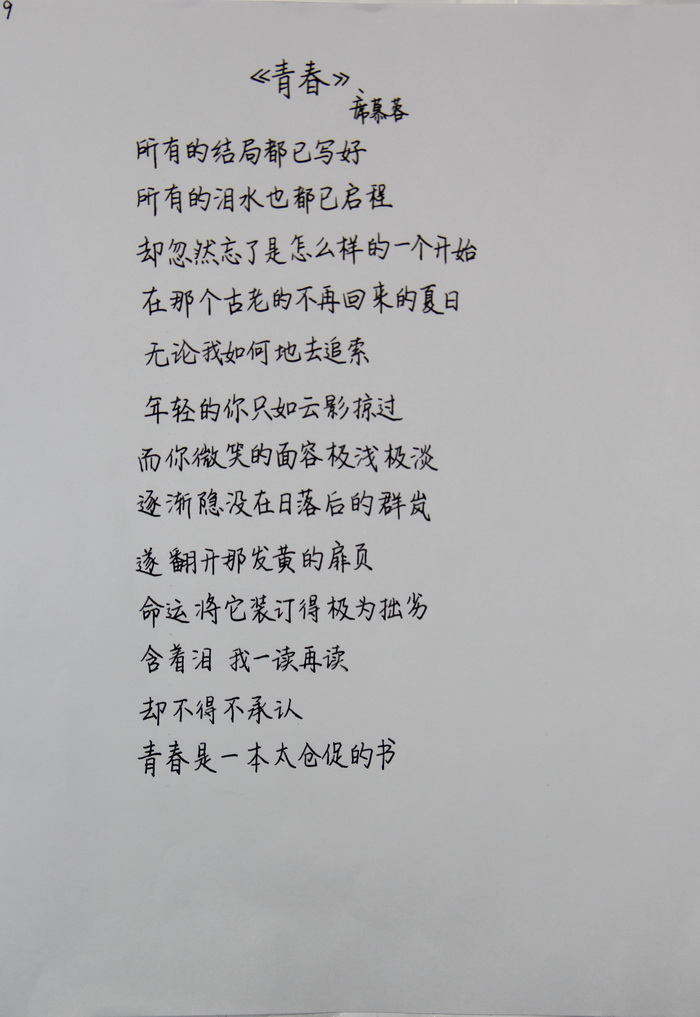 9
《青春》
席慕蓉
所有的结局都已写好
所有的泪水也都已启程
却忽然忘了是怎么样的一个开始
在那个古老的不再回来的夏日
无论我如何地去追索
年轻的你只如云影掠过
而你微笑的面容极浅极淡
逐渐隐没在日落后的群岚
遂翻开那发黄的扉页
命运将它装订得极为拙劣
含着泪 我一读再读
却不得不承认
青春是一本太仓促的书